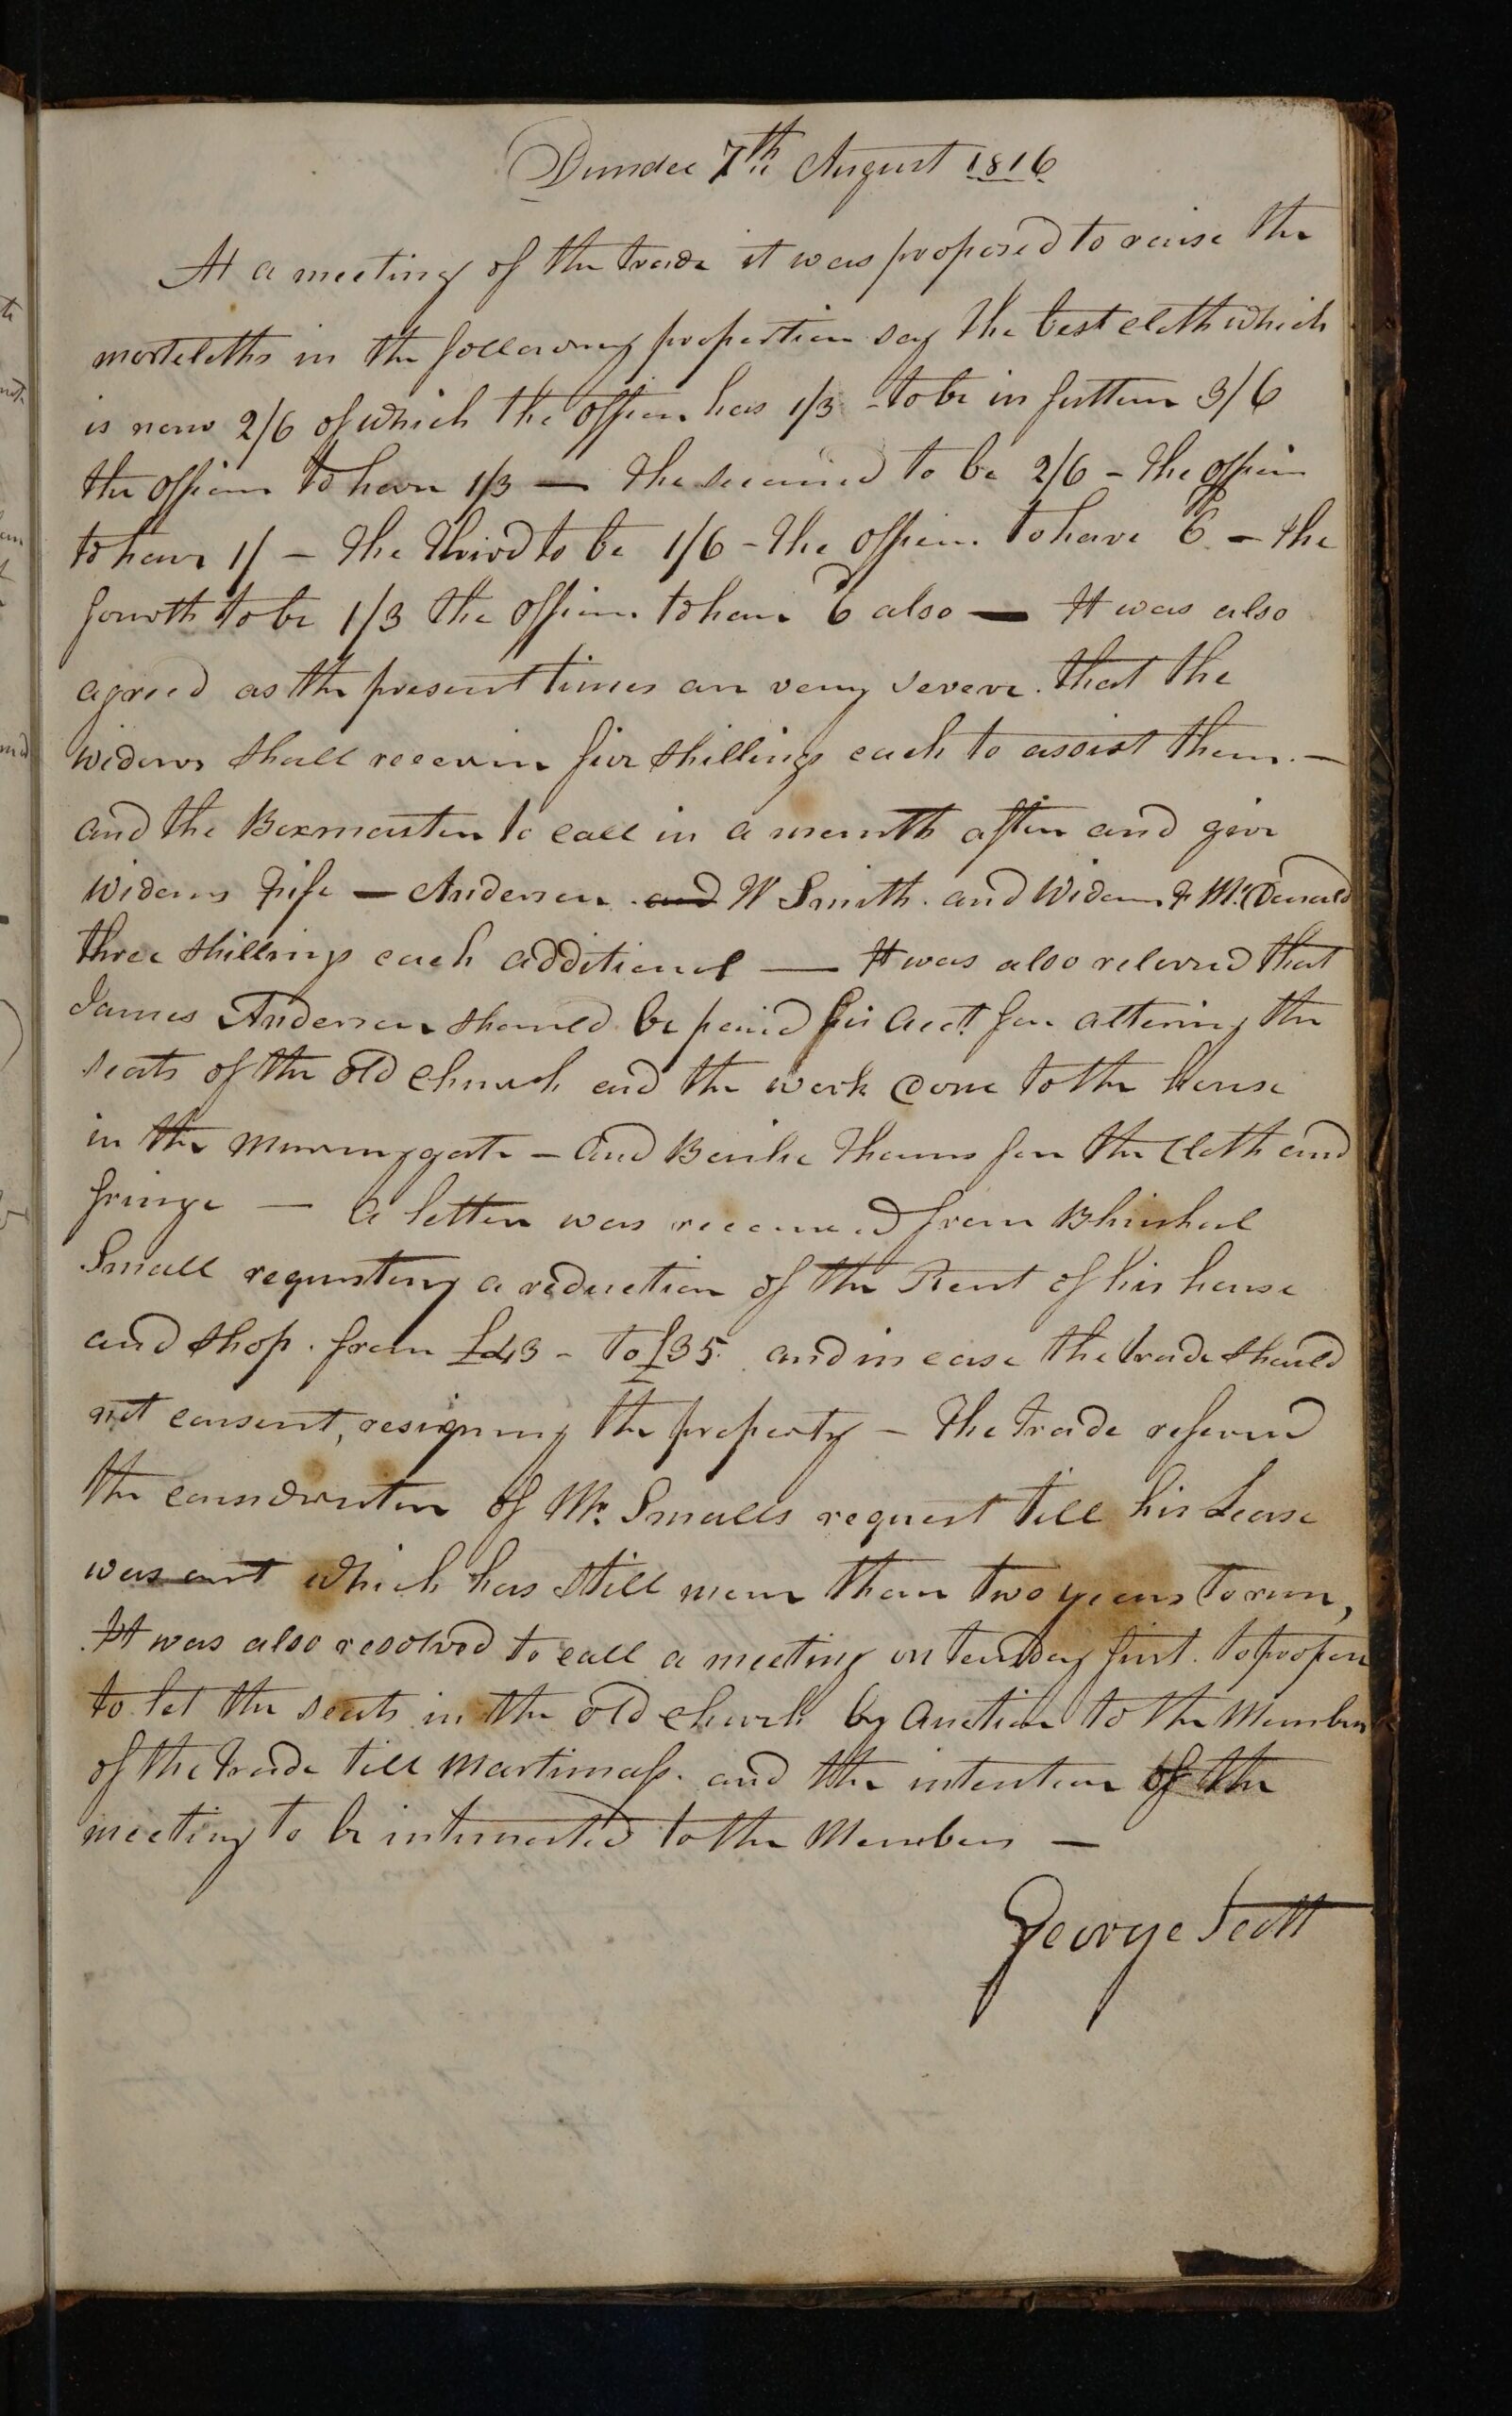 Dundee 7th August 1816
At a meeting of the trade it was proposed to raise the
mortcloths in the following proportion say the best cloth which
is now 2/6 of which the officer has 1/3 - to be in future 3/6
the officer to have 1/3 — The second to be 2/6 - The officer
to have 1/ - The third to be 1/6 - The officer to have 6d - the
fourth to be 1/3 the officer to have 6d also — It was also
agreed as the present times are very severe. that the
widows shall receive five shillings each to assist them. —
and the Boxmaster to call in a month after and give
Widows Fife — Anderson and W Smith. and Widow McDonald
three shillings each additional — It was also relosed that
James Anderson should be paid his acct. for altering the
seats of the old church and the work done to the house
in the Murraygate - and Thoms for the Cloth and
fringe — A letter was received from
Small requesting a reduction of the Rent of his house
and shop. from £43 - to £35 and in case the trade should
not consent, resigning the property - The Trade refered
the consideration of Mr. Smalls request till his Lease
was out which has still more than two years to run,
It was also resolved to call a meeting on teusday first. to propose
to let the seats in the old church by auction to the Members
of the Trade till Martimass. and the intention of the
meeting to be intimated to the Members —
George Scott